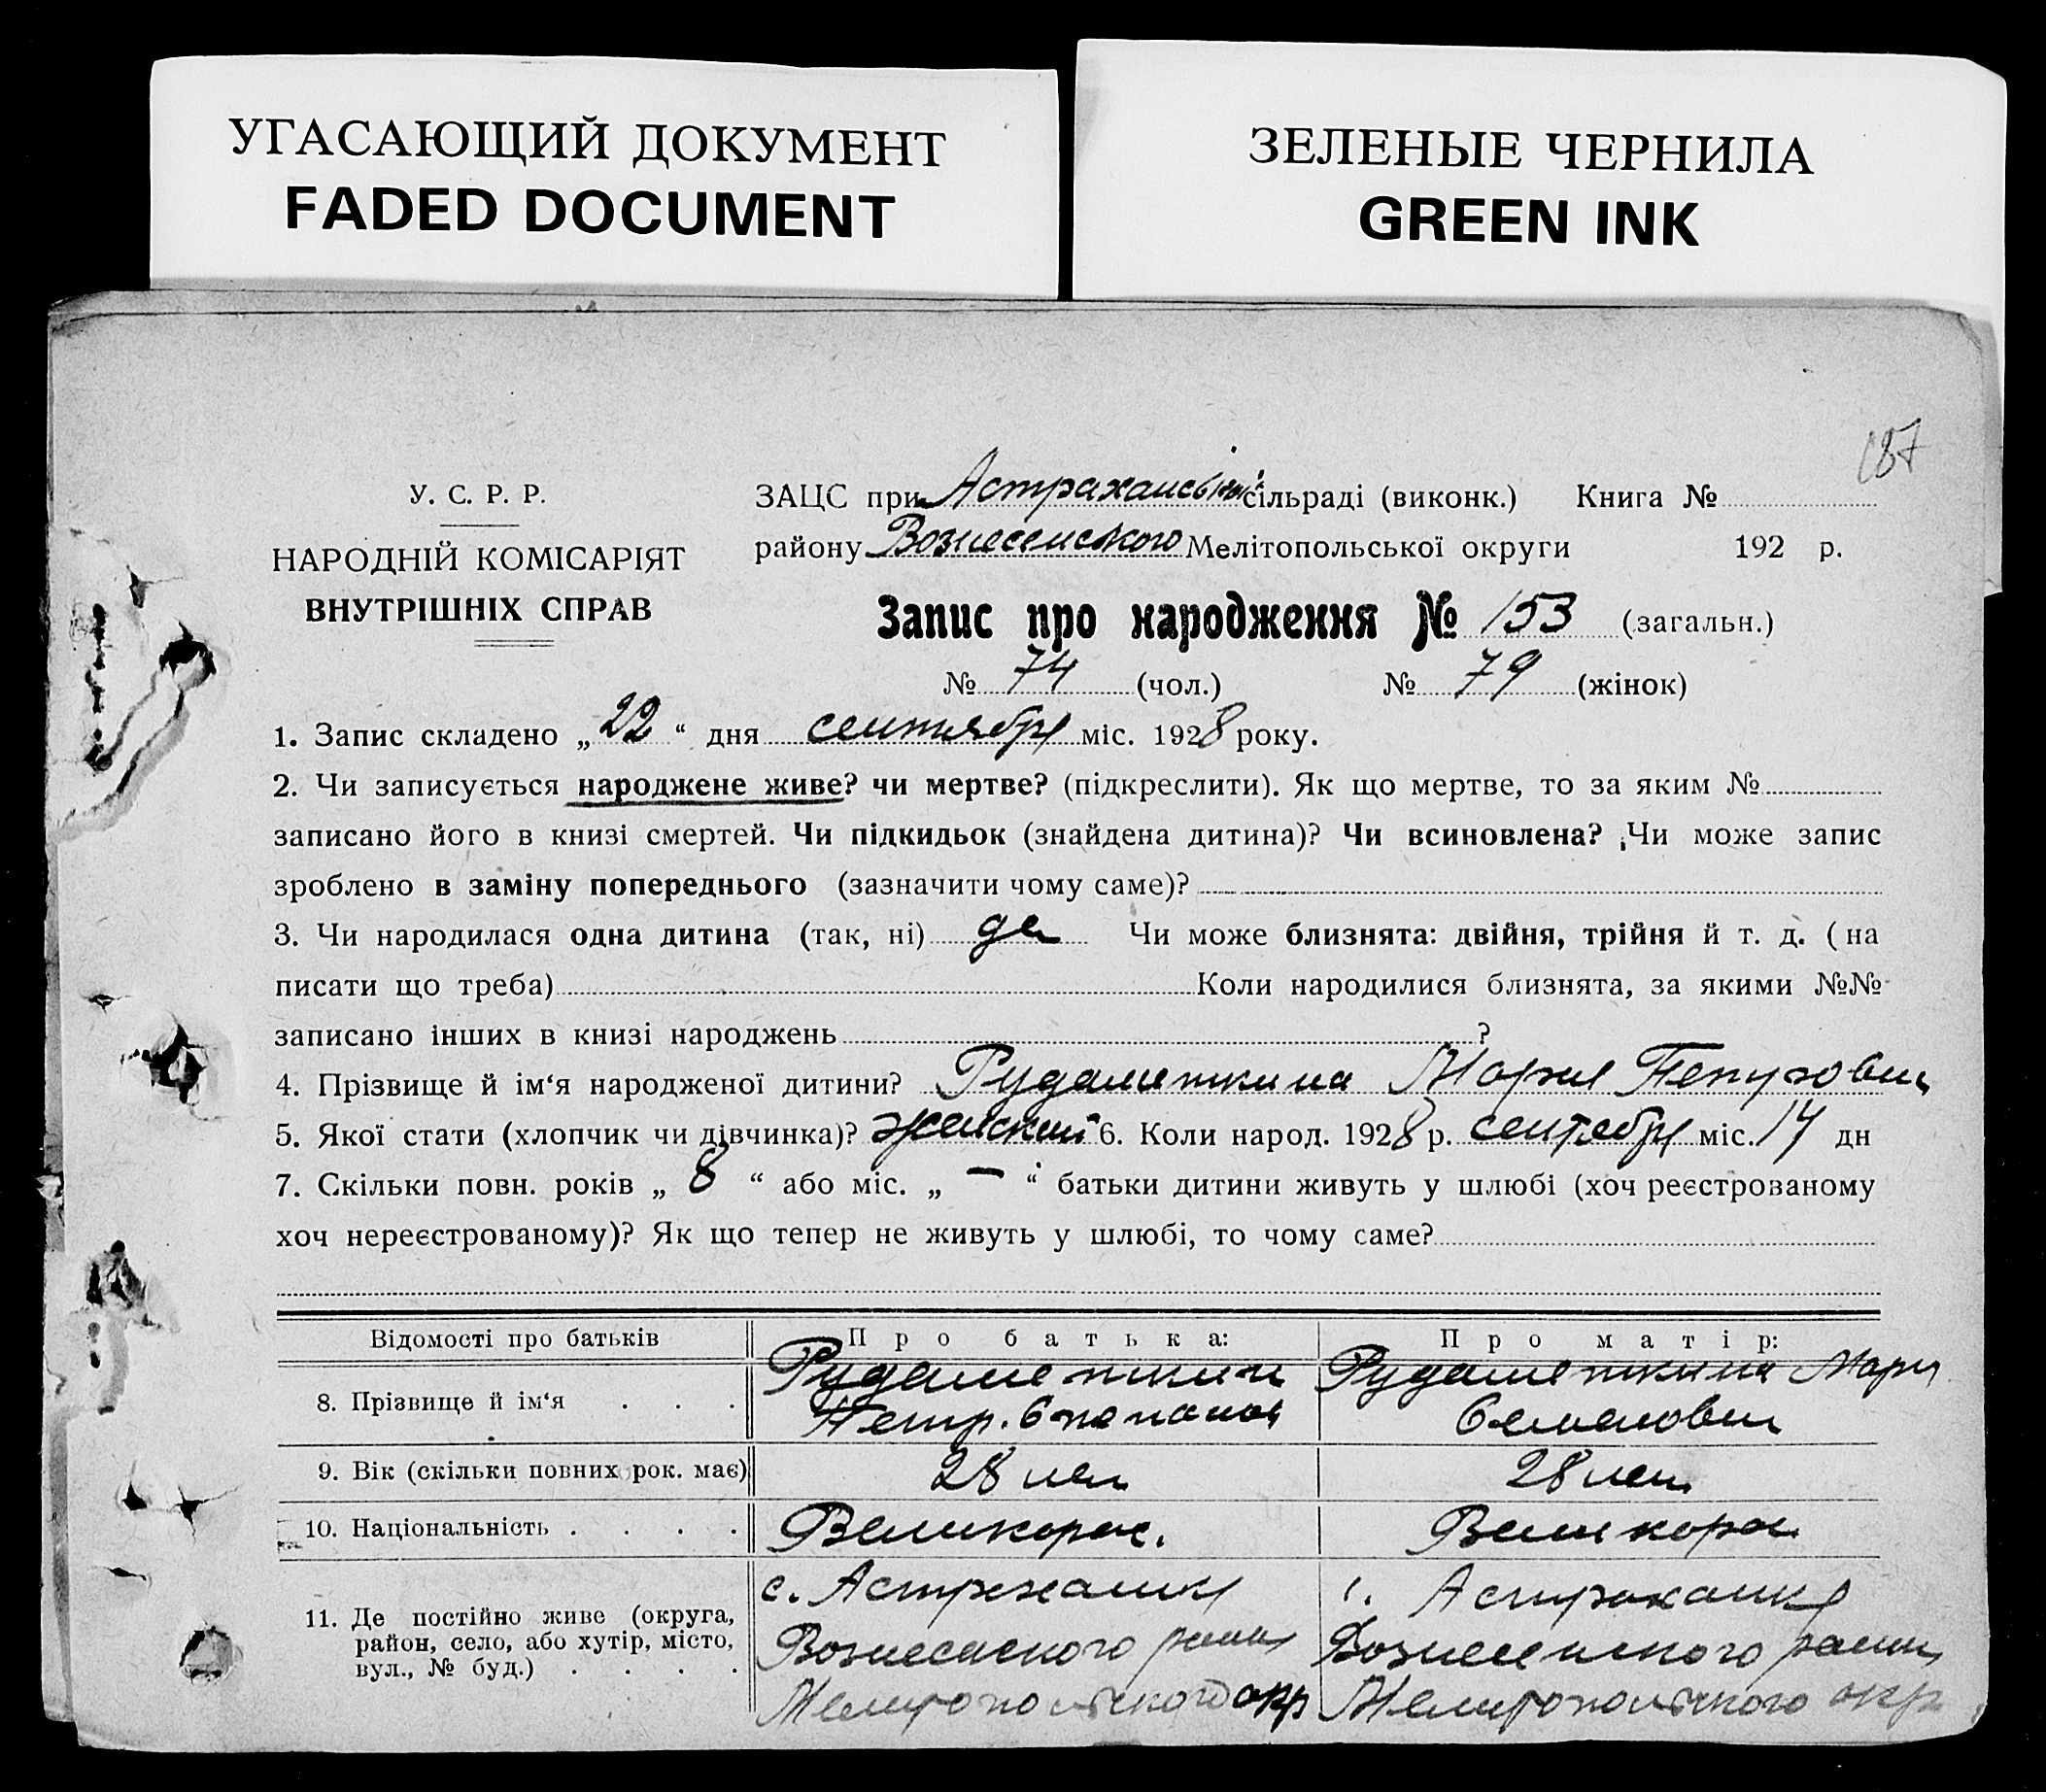 УГАСАЮЩИЙ ДОКУМЕНТ
FADED DOCUMENT
ЗЕЛЕНЫЕ ЧЕРНИЛА
GREEN INK
187
У. С. Р. Р.
НАРОДНІЙ КОМІСАРІЯТ
ВНУТРІШНІХ СПРАВ
ЗАЦС при Астраханській сільраді (виконк.) Книга №
району Вознесенського Мелітопольської округи 192 р.
Запис про народження № 153 (загальн.)
№ 74 (чол.) № 79 (жінок)
1. Запис складено „ 22 “ дня сентября міс. 1928 року.
2. Чи записується народжене живе? чи мертве? (підкреслити). Як що мертве, то за яким №
записано його в книзі смертей. Чи підкидьок (знайдена дитина)? Чи всиновлена? Чи може запис
зроблено в заміну попереднього (зазначити чому саме)?
3. Чи народилася одна дитина (так, ні) да Чи може близнята: двійня, трійня й т. д. (на
писати що треба) Коли народилися близнята, за якими №№
записано інших в книзі народжень ?
4. Прізвище й ім‘я народженої дитини? Рудаметкина Мария Петровн
5. Якої стати (хлопчик чи дівчинка)? женский 6. Коли народ. 1928 р. сентября міс. 14 дн
7. Скільки повн. років „ 8 “ або міс. „ — “ батьки дитини живуть у шлюбі (хоч реєстрованому
хоч нереєстрованому)? Як що тепер не живуть у шлюбі, то чому саме?
Відомості про батьків Про батька: Про матір:
8. Прізвище й ім‘я . . . Рудаметкин Рудаметкина Мария
Петр Семеновн
9. Вік (скільки повних рок. має) 28 лет 28 лет
10. Національність . . . . Великорос. Великорос
11. Де постійно живе (округа,
район, село, або хутір, місто,
вул., № буд.) . . . .
с. Астраханки
Вознесенского район
Мелитопольского окр
с. Астраханки
Вознесенского район
Мелитопольского окр